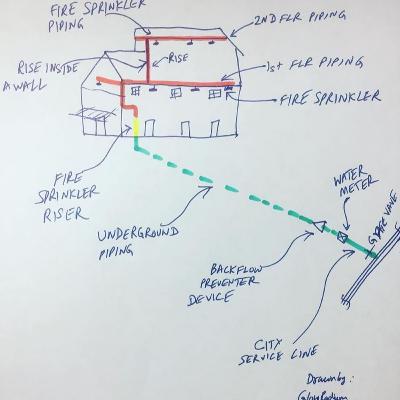 FIRE SPRINKLER
PIPING
2ND FLR PIPING
RISE INSIDE
A WALL
RISE
1st FLR PIPING
FIRE SPRINKLER
FIRE
SPRINKLER
RISER
UNDERGROUND
PIPING
WATER
METER
BACKFLOW
PREVENTER
DEVICE
CITY
SERVICE LINE
Drawn by: